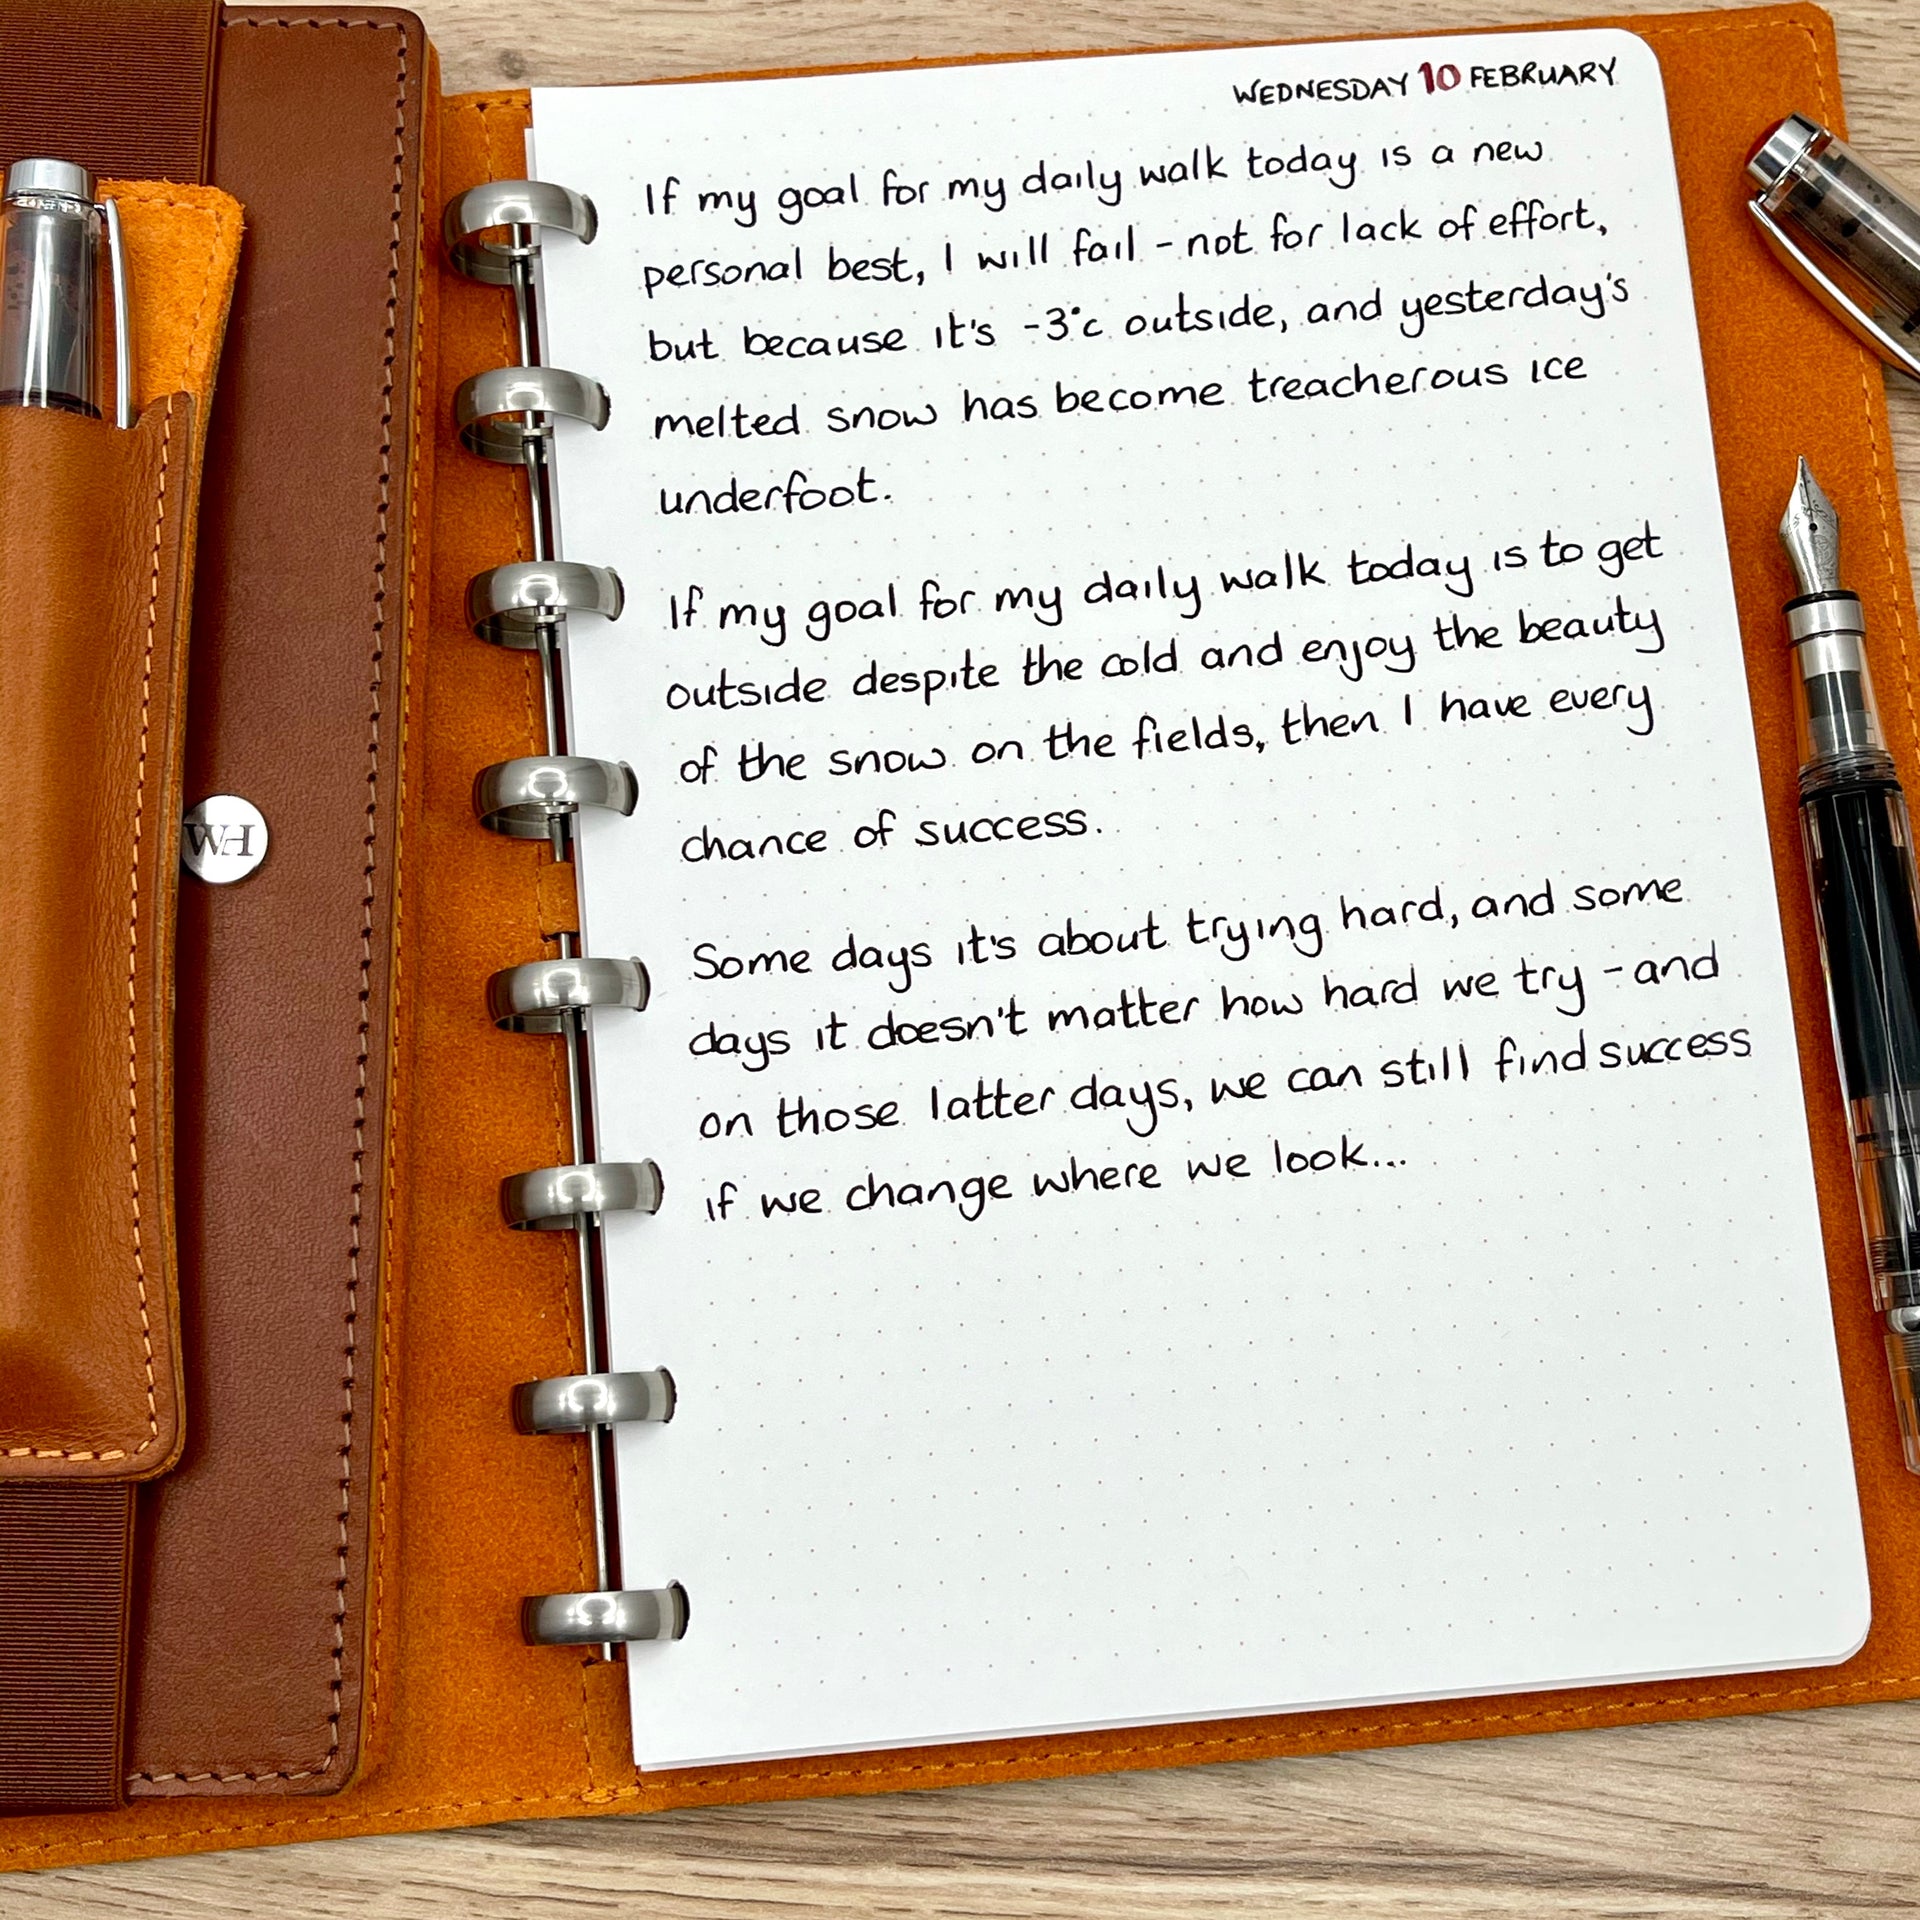 WEDNESDAY 10 FEBRUARY
If my goal for my daily walk today is a new
personal best, I will fail - not for lack of effort,
but because it's -3°c outside, and yesterday's
melted snow has become treacherous ice
underfoot.
If my goal for my daily walk today is to get
outside despite the cold and enjoy the beauty
of the snow on the fields, then I have every
chance of success.
Some days it's about trying hard, and some
days it doesn't matter how hard we try - and
on those latter days, we can still find success
if we change where we look...
WH